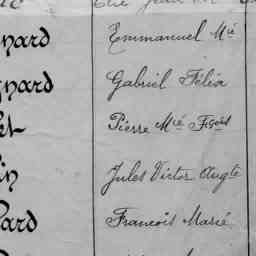 nard Emmanuel Mie
gnard Gabriel Félix
et Pierre Mié
in Jules Victor Augte
ard Francois Marie